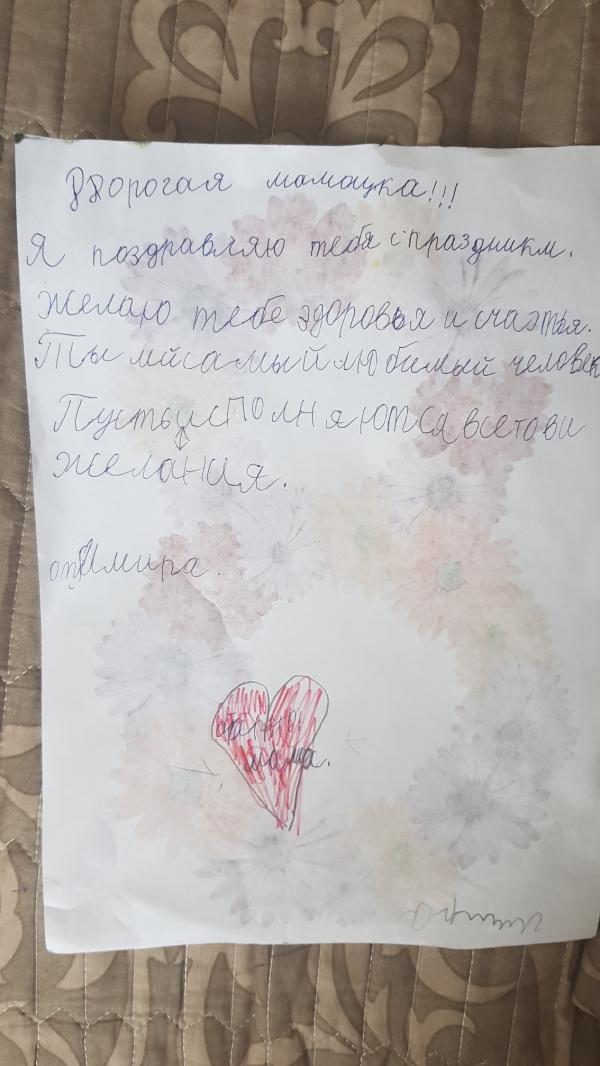 Дорогая мамочка!!!
Я поздравляю тебя с праздникм.
Желаю тебе здоровья и счастья.
Ты мй самый любимый человек
Пусть исполняются все твои
желания.
от Имира.
мама.